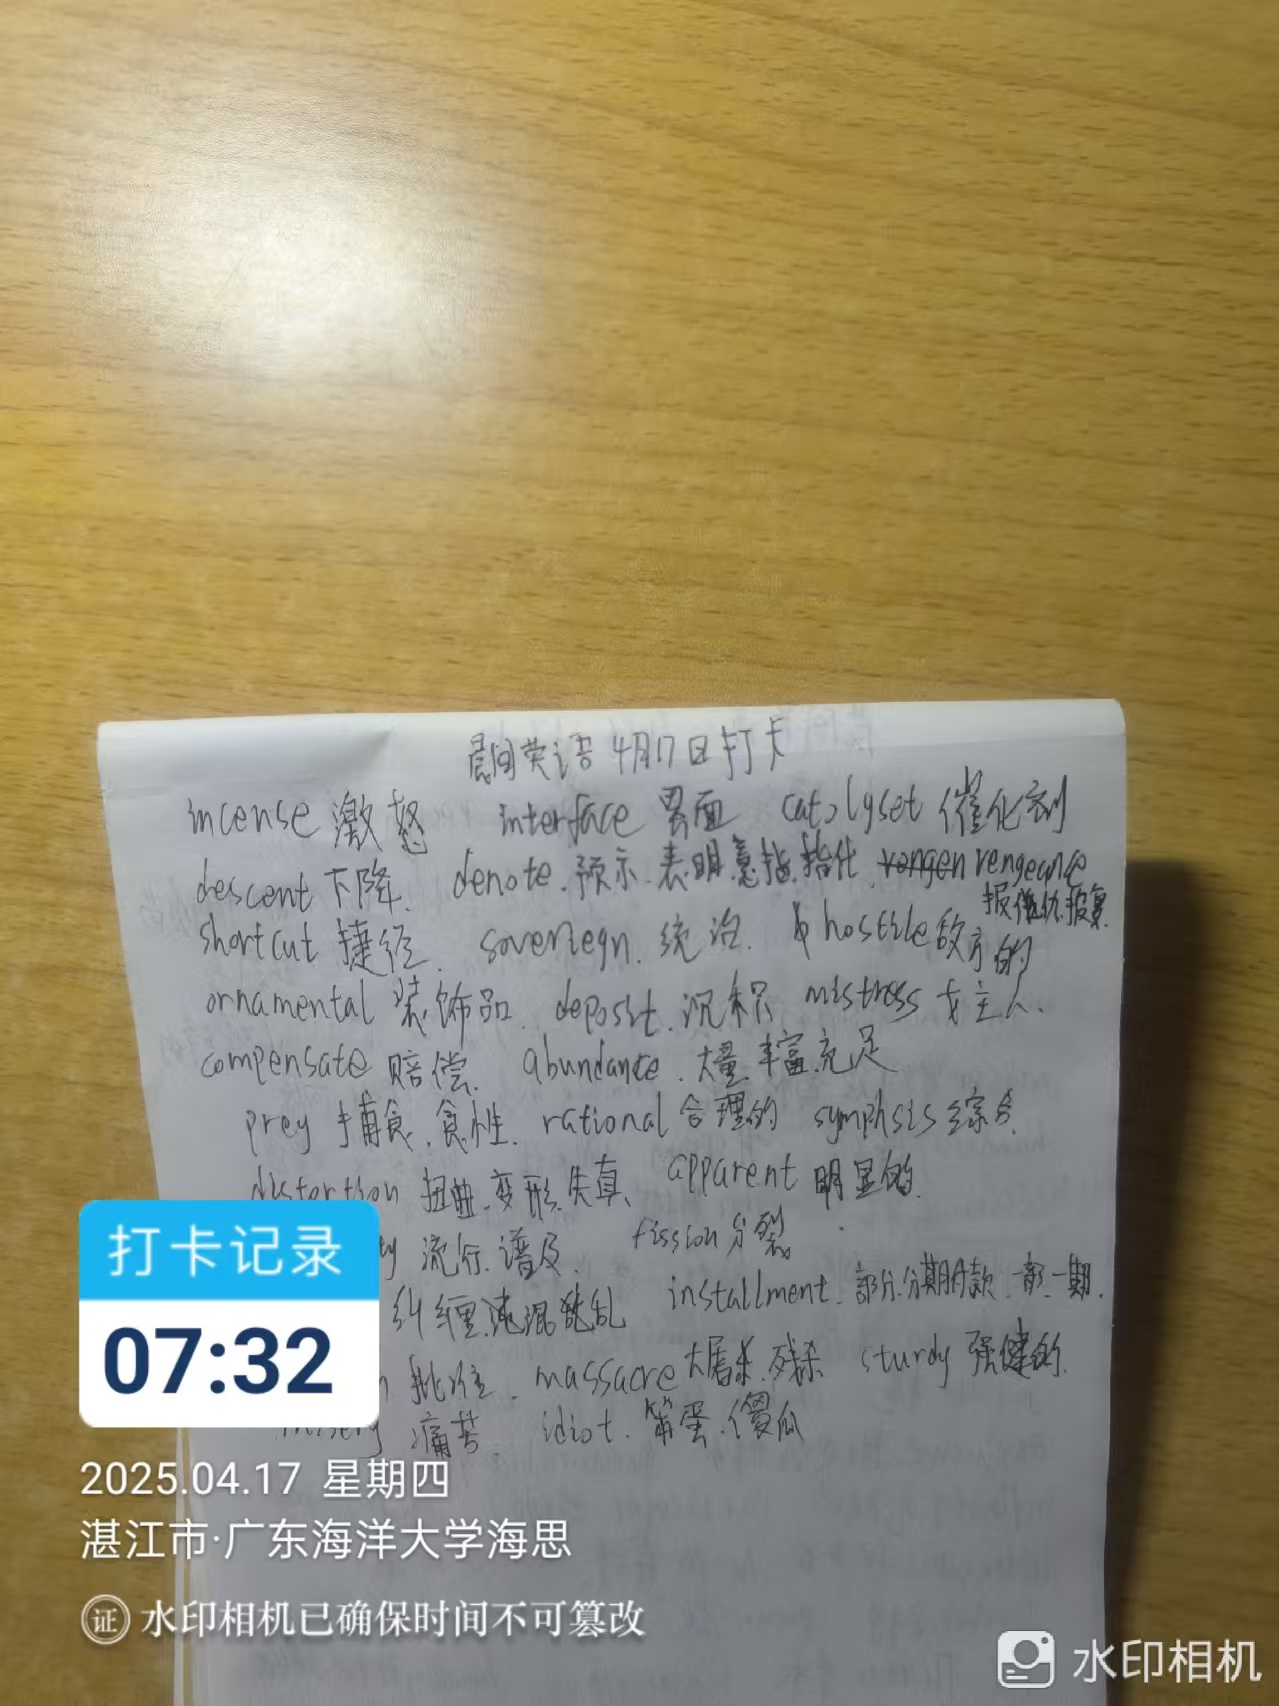 晨间英语 4月17日打卡
incense 激怒 interface 界面 catalyset 催化剂
descent 下降. denote. 预示. 表明. 意指. 指代. vengeance
报仇. 报复.
shortcut 捷径. sovereign. 统治. hostile 敌方的
ornamental 装饰品. deposit. 沉积 mistress 女主人.
compensate 赔偿. abundance. 大量. 丰富. 充足
prey 捕食. 食性. rational 合理的 symphsis 综合.
distortion 扭曲. 变形. 失真. apparent 明显的.
流行. 谱及. fission 分裂.
纠缠. 混乱 installment. 部分. 分期付款. 一部. 一期.
批注. massacre 大屠杀. 残杀 sturdy 强健的.
misery 痛苦. idiot. 笨蛋. 傻瓜
打卡记录
07:32
2025.04.17 星期四
湛江市·广东海洋大学海思
证 水印相机已确保时间不可篡改
水印相机